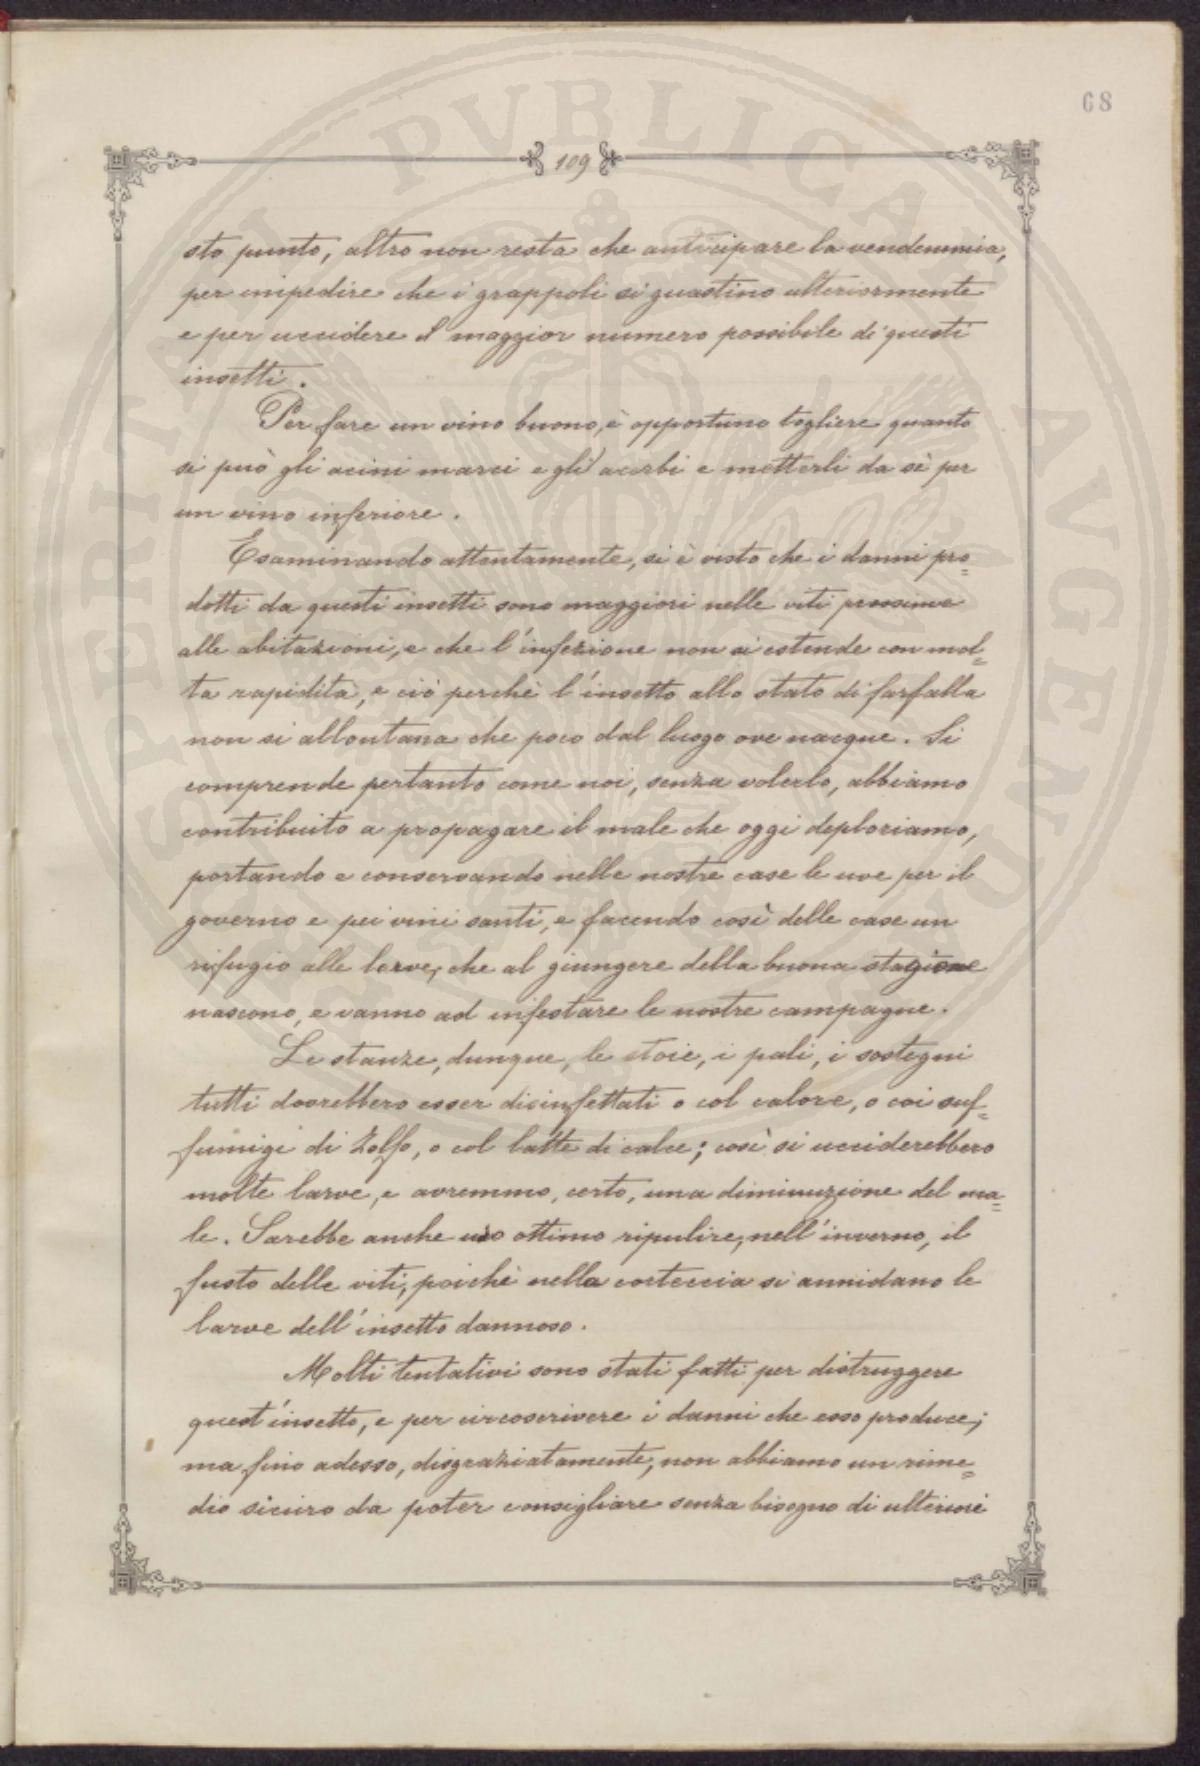 68
109
sto punto, altro non resta che anticipare la vendemmia,
per impedire che i grappoli si guastino ulteriormente
e per uccidere il maggior numero possibile di questi
insetti.
Per fare un vino buono, è opportuno togliere quanto
si può gli acini marci e gli acerbi e metterli da sè per
un vino inferiore.
Esaminando attentamente, si è visto che i danni pro=
dotti da questi insetti sono maggiori nelle viti prossime
alle abitazioni, e che l'infezione non si estende con mol=
ta rapidità, e ciò perchè l'insetto allo stato di farfalla
non si allontana che poco dal luogo ove nacque. Si
comprende pertanto come noi, senza volerlo, abbiamo
contribuito a propagare il male che oggi deploriamo,
portando e conservando nelle nostre case le uve per il
governo e pei vini santi, e facendo così delle case un
rifugio alle larve, che al giungere della buona stagione
nascono, e vanno ad infestare le nostre campagne.
Le stanze, dunque, le stoie, i pali, i sostegni
tutti dovrebbero esser disinfettati o col calore, o coi suf=
fumigi di zolfo, o col latte di calce; così si ucciderebbero
molte larve, e avremmo, certo, una diminuzione del ma=
le. Sarebbe anche uso ottimo ripulire, nell'inverno, il
fusto delle viti, poichè nella corteccia si annidano le
larve dell'insetto dannoso.
Molti tentativi sono stati fatti per distruggere
quest'insetto, e per circoscrivere i danni che esso produce;
ma fino adesso, disgraziatamente, non abbiamo un rime=
dio sicuro da poter consigliare senza bisogno di ulteriori
PERITATI PVBLICAE AVGEND